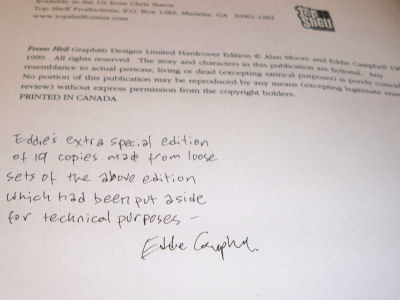 Available in the US from Chris Staros
Top Shelf Productions, P.O. Box 1282, Marietta, GA 30061-1282
www.topshelfcomix.com
TOP
Shelf
From Hell Graphitti Designs Limited Hardcover Edition © Alan Moore and Eddie Campbell
1999. All rights reserved. The story and characters in this publication are fictional. Any
resemblance to actual persons, living or dead (excepting satirical purposes) is purely
No portion of this publication may be reproduced by any means (excepting legitimate
review) without express permission from the copyright holders.
PRINTED IN CANADA
Eddie's extra special edition
of 19 copies made from loose
sets of the above edition
which had been put aside
for technical purposes —
Eddie Campbell